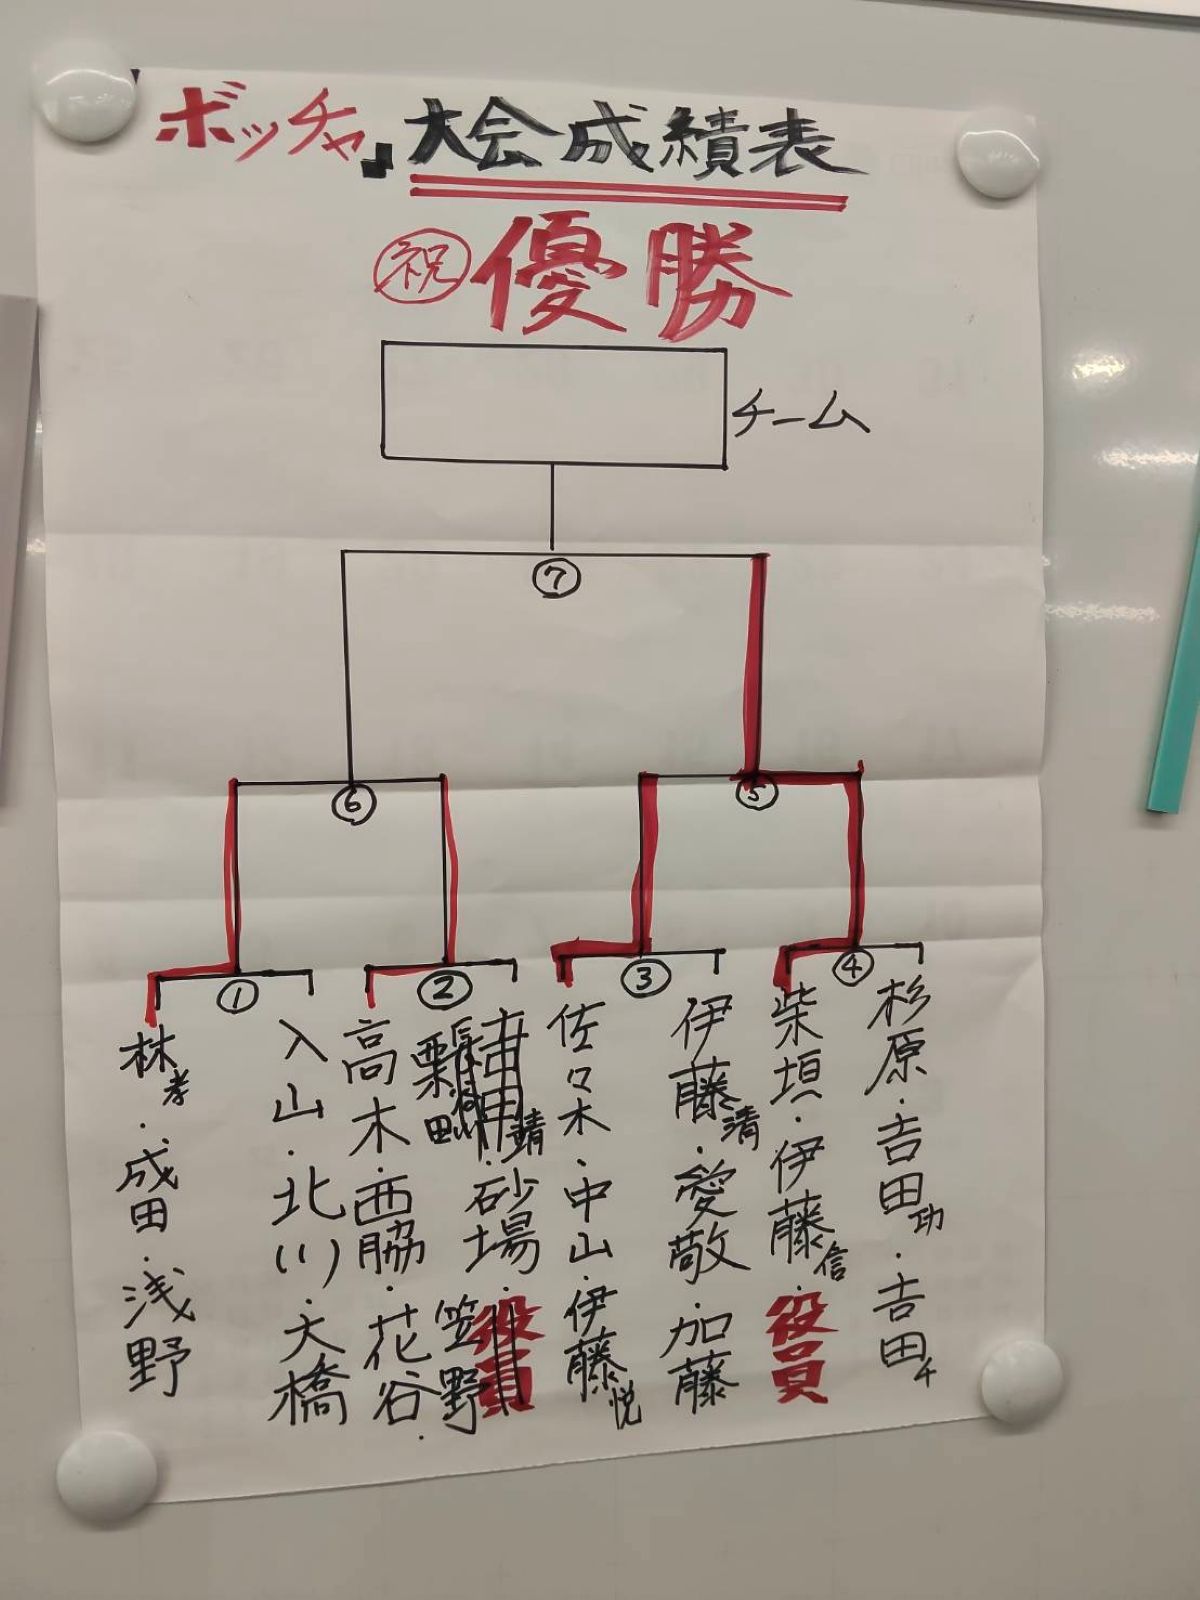 ボッチャ 大会成績表
祝 優勝
チーム
⑦
⑥
⑤
①
②
③
④
林孝・成田・浅野
入山・北川・大橋
高木・西脇・花谷
栗田・砂場・笠野
役員
佐々木・中山・伊藤悦
伊藤清・愛敬・加藤
柴垣・伊藤信・役員
杉原・吉田功・吉田チ